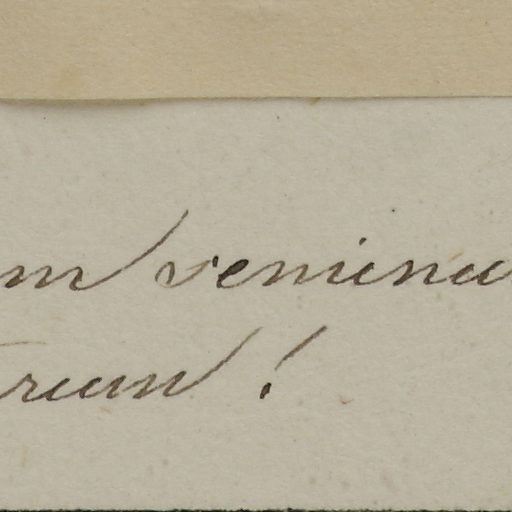 m veniena
rum !